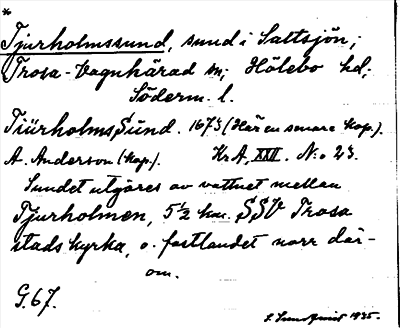 *
Tjurholmssund, sund i Saltsjön;
Trosa-Vagnhärad sn; Hölebo hd;
Söderm. l.
Tiürholms Sund. 1673 (Här en senare kop.).
A. Anderson (kap.). Kr A, XXII. N:o 23.
Sundet utgöres av vattnet mellan
Tjurholmen, 5 1/2 km. SSV Trosa
stads kyrka, o. fastlandet norr där-
om.
G. 67.
1935.